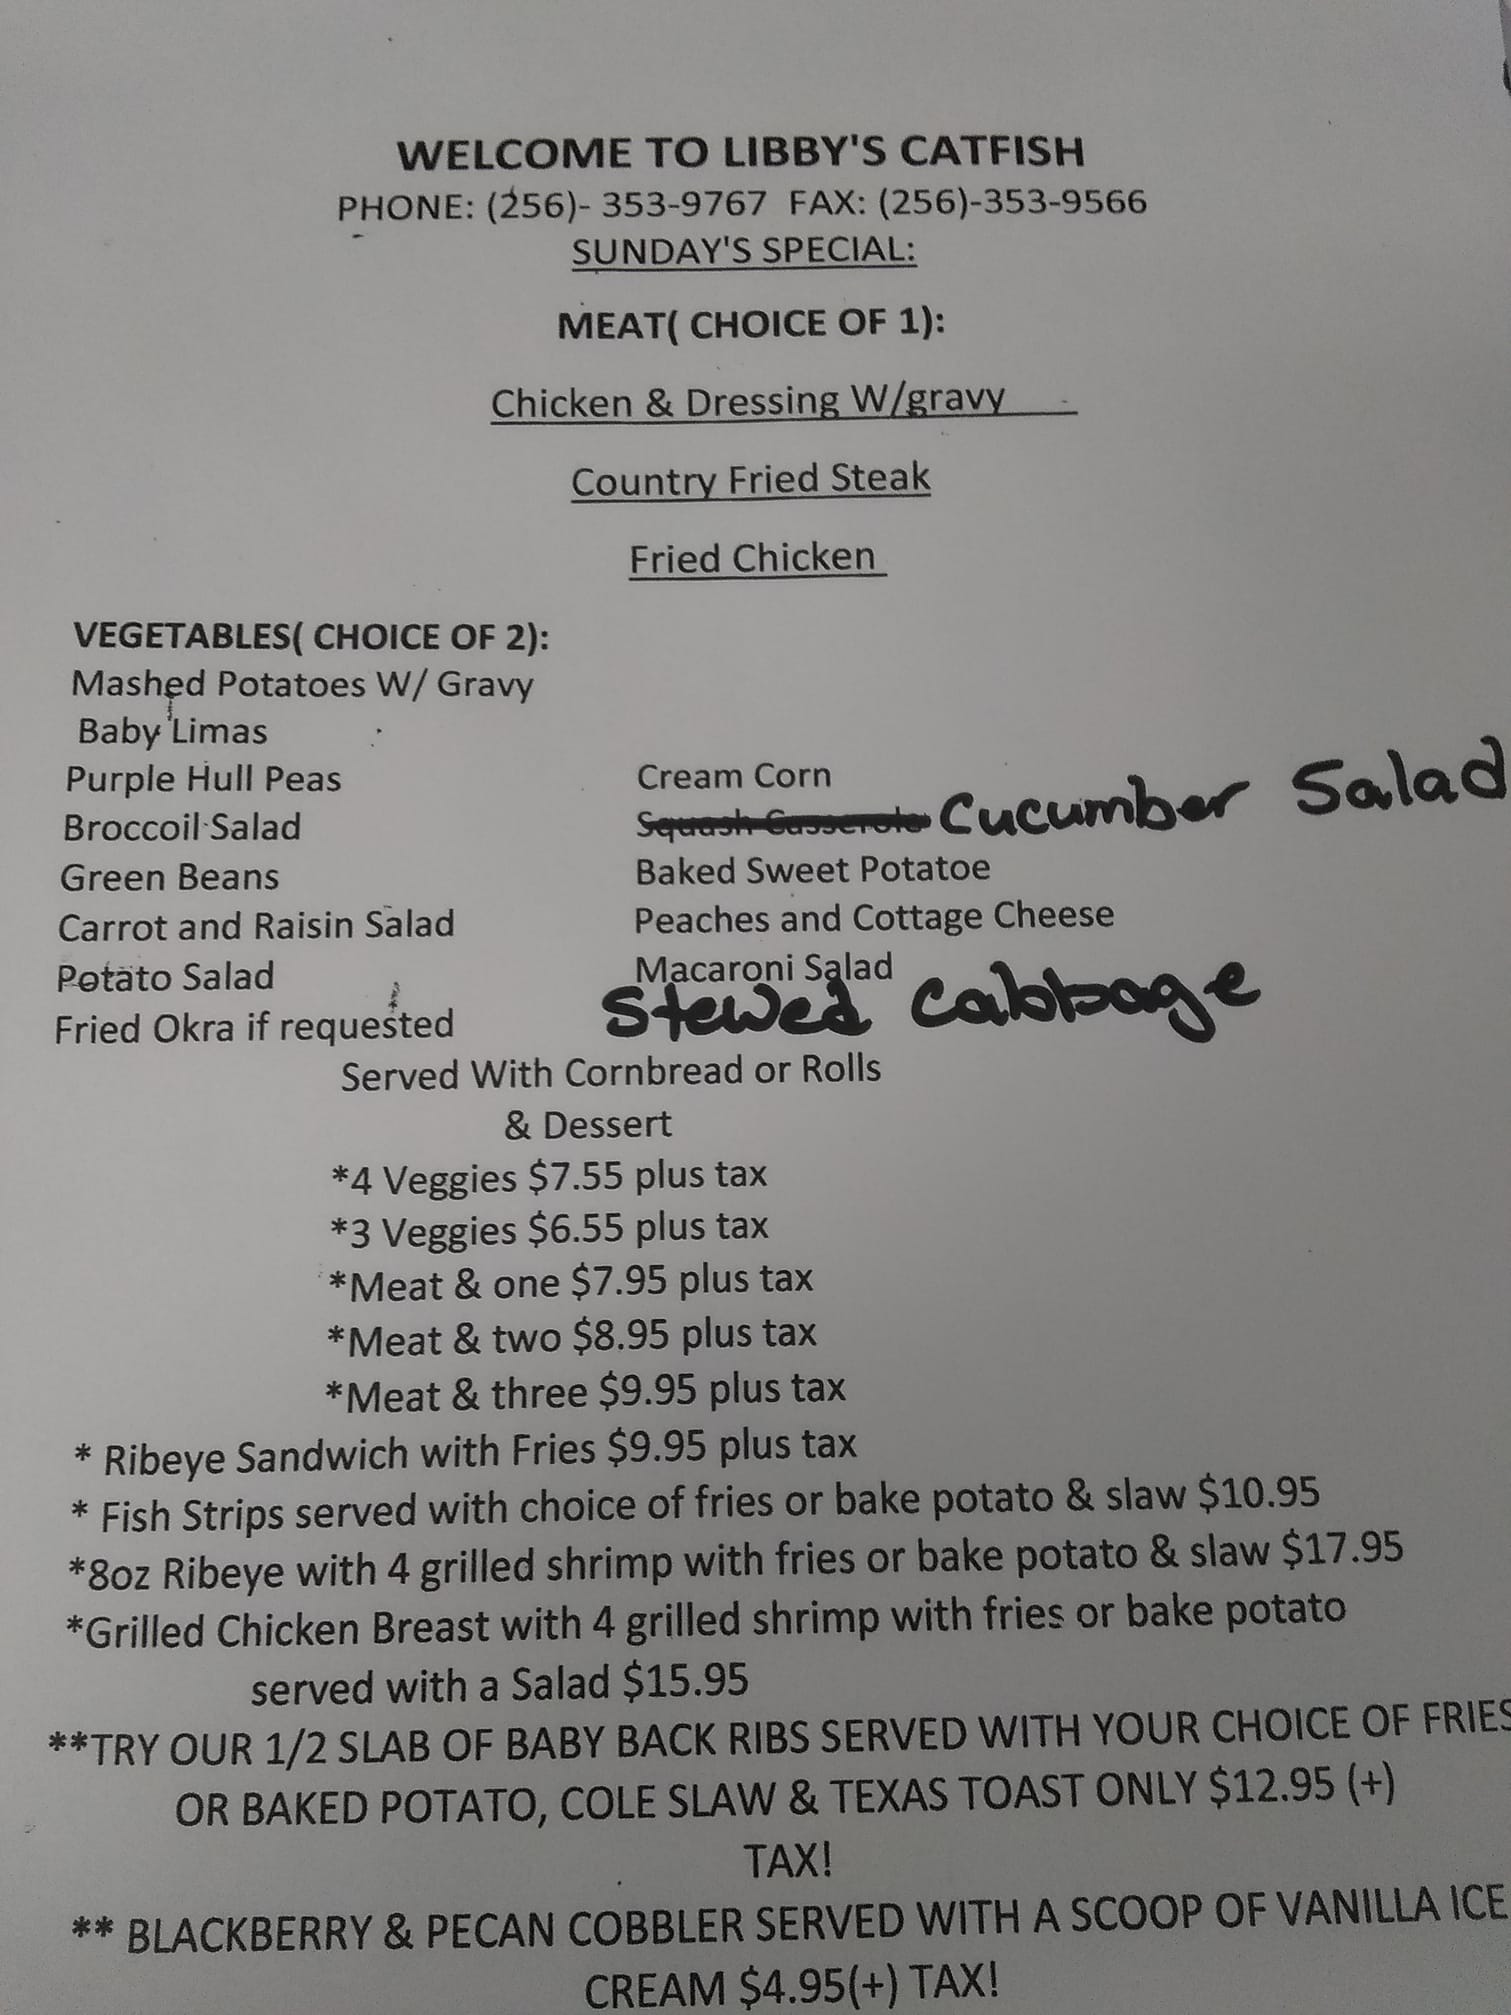 WELCOME TO LIBBY'S CATFISH
PHONE: (256)- 353-9767 FAX: (256)-353-9566
SUNDAY'S SPECIAL:
MEAT( CHOICE OF 1):
Chicken & Dressing W/gravy
Country Fried Steak
Fried Chicken
VEGETABLES( CHOICE OF 2):
Mashed Potatoes W/ Gravy
Baby Limas
Purple Hull Peas
Broccoil Salad
Green Beans
Carrot and Raisin Salad
Potato Salad
Fried Okra if requested
Cream Corn
Squash Casserole Cucumber Salad
Baked Sweet Potatoe
Peaches and Cottage Cheese
Macaroni Salad
Stewed Cabbage
Served With Cornbread or Rolls
& Dessert
*4 Veggies $7.55 plus tax
*3 Veggies $6.55 plus tax
*Meat & one $7.95 plus tax
*Meat & two $8.95 plus tax
*Meat & three $9.95 plus tax
* Ribeye Sandwich with Fries $9.95 plus tax
* Fish Strips served with choice of fries or bake potato & slaw $10.95
*8oz Ribeye with 4 grilled shrimp with fries or bake potato & slaw $17.95
*Grilled Chicken Breast with 4 grilled shrimp with fries or bake potato
served with a Salad $15.95
**TRY OUR 1/2 SLAB OF BABY BACK RIBS SERVED WITH YOUR CHOICE OF FRIES
OR BAKED POTATO, COLE SLAW & TEXAS TOAST ONLY $12.95 (+)
TAX!
** BLACKBERRY & PECAN COBBLER SERVED WITH A SCOOP OF VANILLA ICE
CREAM $4.95(+) TAX!